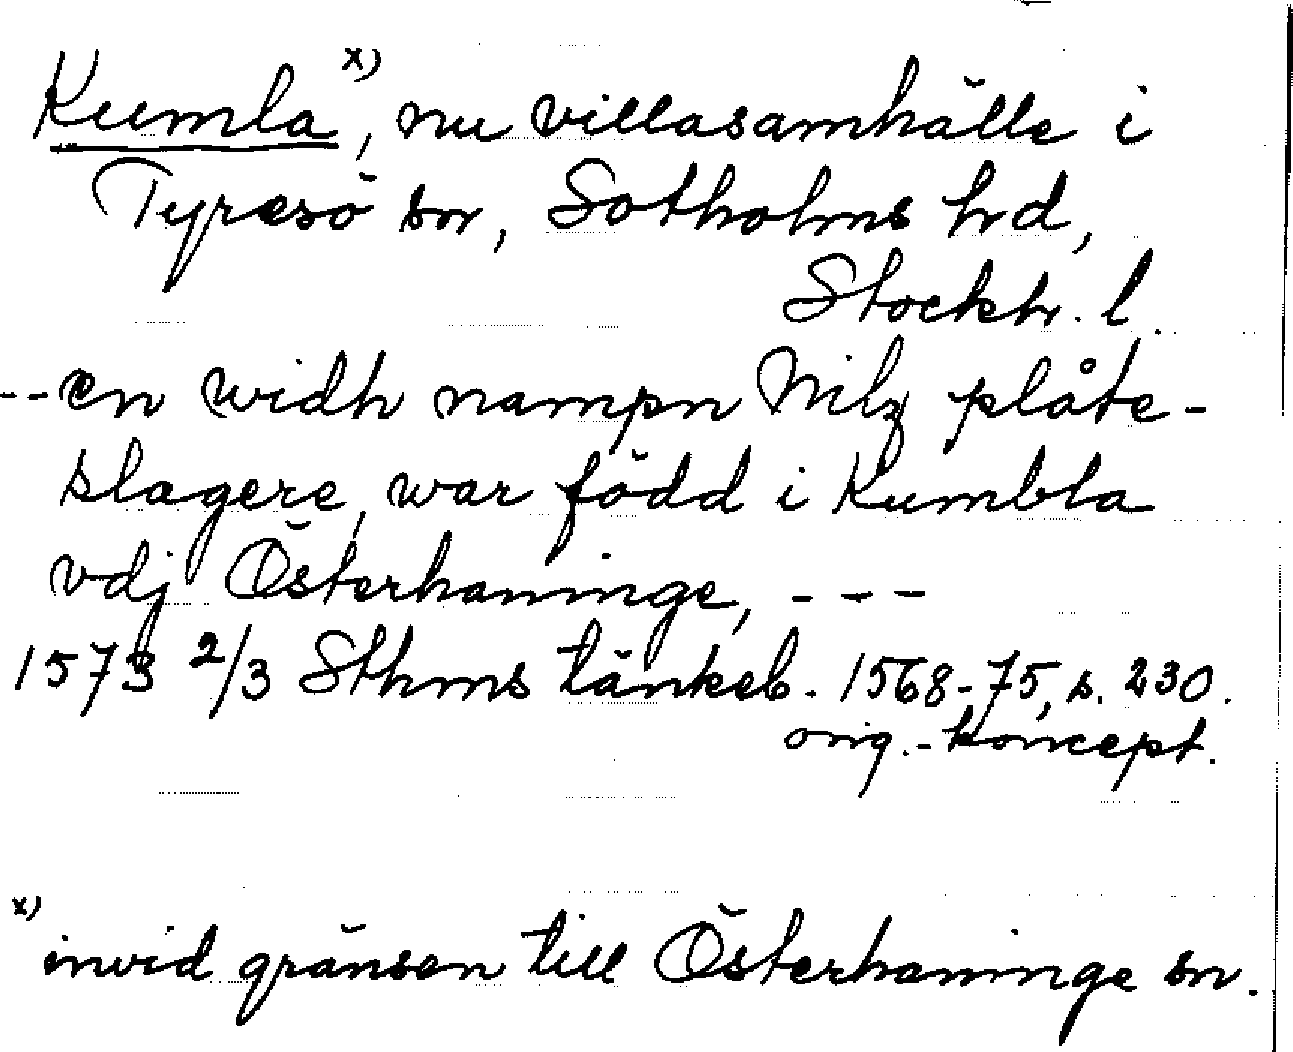 Kumla x), nu villasamhälle i
Tyresö sn, Sotholms hrd,
Stockh. l.
--en widh nampn Nilz plåte-
slagere, war född i Kumbla
vdj Österhaninge, ---
1573 2/3 Sthms tänkeb. 1568-75, s. 230.
orig.-koncept.
x) invid gränsen till Österhaninge sn.